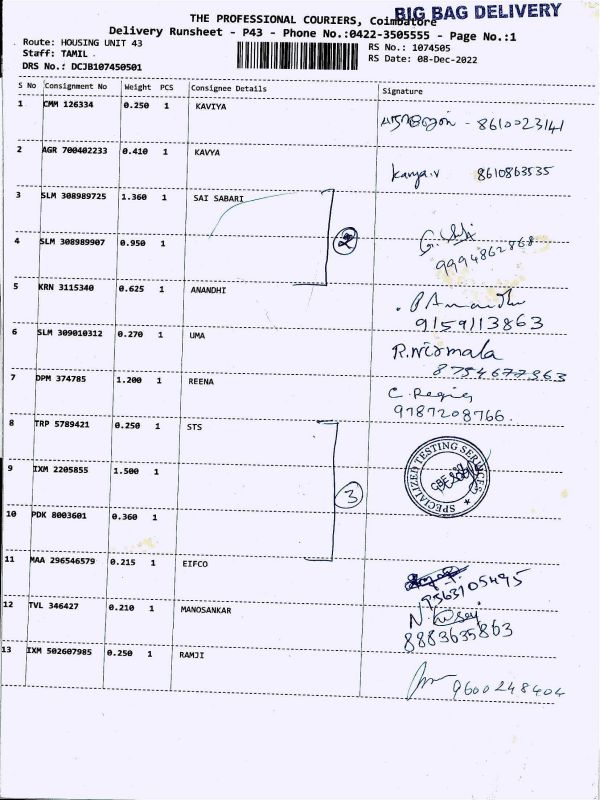 BIG BAG DELIVERY
THE PROFESSIONAL COURIERS, Coimbatore
Delivery Runsheet - P43 - Phone No.:0422-3505555 - Page No.:1
Route: HOUSING UNIT 43
RS No.: 1074505
Staff: TAMIL
RS Date: 08-Dec-2022
DRS No.: DCJB107450501
S No Consignment No Weight PCS Consignee Details Signature
1 CMM 126334 0.250 1 KAVIYA
- 8610023141
2 AGR 700402233 0.410 1 KAVYA
Kavya.v 8610863535
3 SLM 308989725 1.360 1 SAI SABARI
2
4 SLM 308989907 0.950 1
9994862868
5 KRN 3115340 0.625 1 ANANDHI
9159113863
6 SLM 309010312 0.270 1 UMA
R.Nirmala
8754677363
7 DPM 374785 1.200 1 REENA
9787208766.
8 TRP 5789421 0.250 1 STS
SPECIALIZED TESTING SERVICES
9 IXM 2205855 1.500 1
3
10 PDK 8003601 0.360 1
11 MAA 296546579 0.215 1 EIFCO
9563105495
12 TVL 346427 0.210 1 MANOSANKAR
8883635863
13 IXM 502607985 0.250 1 RAMJI
9600248404